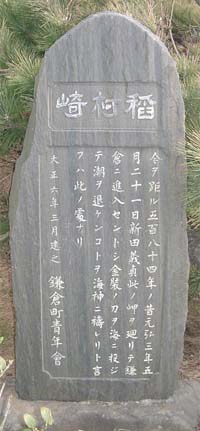 稻村崎
今ヲ距ル五百八十四年ノ昔元弘三年五
月二十一日新田義貞此ノ岬ヲ廻リテ鎌
倉ニ進入セントシ金装ノ刀ヲ海ニ投ジ
テ潮ヲ退ケンコトヲ海神ニ禱レリト言
フハ此ノ處ナリ
大正六年三月建之 鎌倉町青年會